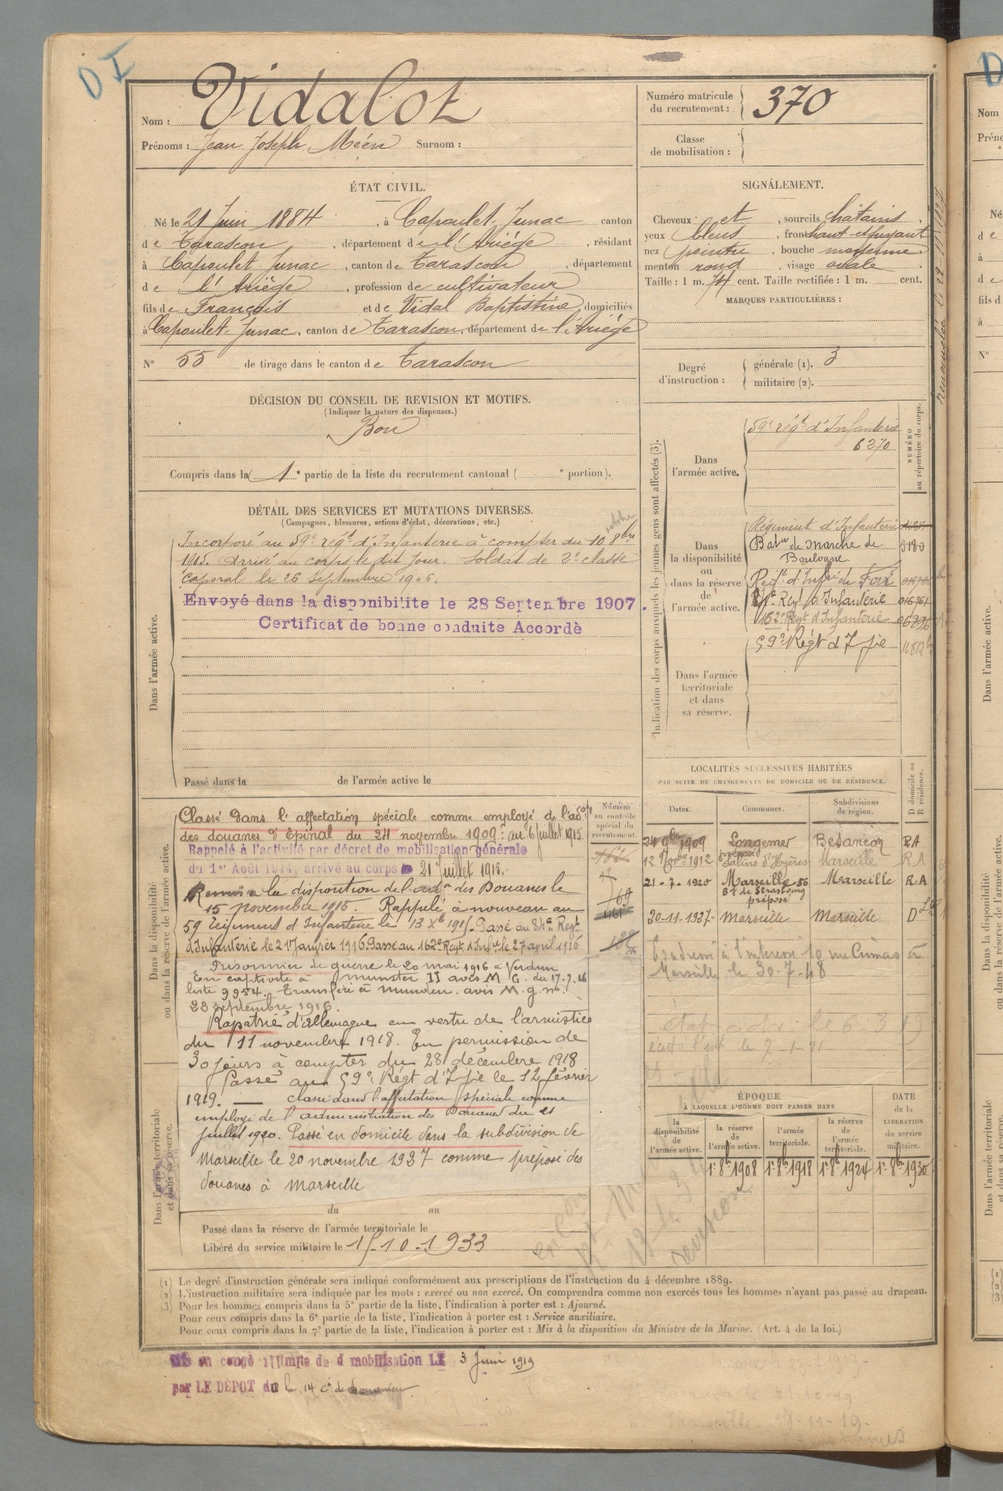 D I
Nom : Vidalot
Prénoms : Jean Joseph Méen Surnom :
Numéro matricule
du recrutement : 370
Classe
de mobilisation :
ÉTAT CIVIL.
Né le 21 Juin 1884, à Capoulet-Junac canton
de Tarascon, département de l'Ariège, résidant
à Capoulet-Junac, canton de Tarascon, département
de l'Ariège, profession de cultivateur
fils de François et de Vidal Baptistine, domiciliés
à Capoulet-Junac, canton de Tarascon, département de l'Ariège
N° 55 de tirage dans le canton de Tarascon
SIGNALEMENT.
Cheveux et, sourcils châtains.
yeux bleus, front haut et fuyant
nez pointu, bouche moyenne
menton rond, visage ovale
Taille : 1 m. 74 cent. Taille rectifiée : 1 m. cent.
MARQUES PARTICULIÈRES :
Degré
d'instruction :
générale (1). 3
militaire (2).
DÉCISION DU CONSEIL DE REVISION ET MOTIFS.
(Indiquer la nature des dispenses.)
Bon
Compris dans la 1e partie de la liste du recrutement cantonal ( e portion).
DÉTAIL DES SERVICES ET MUTATIONS DIVERSES.
(Campagnes, blessures, actions d'éclat, décorations, etc.)
Incorporé au 59e régt d'Infanterie à compter du 10 8bre
octobre
1905. Arrivé au corps le dit jour. Soldat de 2e classe
Caporal le 26 septembre 1906.
Envoyé dans la disponibilite le 28 Septenbre 1907.
Certificat de bonne conduite Accordè
Dans l'armée active.
Passé dans la de l'armée active le
Indication des corps auxquels les jeunes gens sont affectés (3).
NUMÉRO
au répertoire du corps.
Dans
l'armée active.
59e régt d'Infanterie
6270
Dans
la disponibilité
ou
dans la réserve
de
l'armée active.
Régiment d'Infanterie
Batn de marche de
Boulogne
Regt d'Infie de Foix
Regt d'Infanterie
162e Regt d'Infanterie
59e Régt d'Ifie
Dans l'armée
territoriale
et dans
sa réserve.
Dans la disponibilité
ou dans la réserve de l'armée active.
Classé dans l'affectation spéciale comme employé de l'adon
des douanes d'Epinal du 24 novembre 1909 : au 6 juillet 1915
Rappelé à l'activité par décret de mobilisation générale
du 1er Août 1914, arrivé au corps le 21 juillet 1915.
Remis à la disposition de l'adon des Douanes le
15 novembre 1915. Rappelé à nouveau au
59 régiment d'Infanterie le 13 Xbre 1915. Passé au Regt
d'Infanterie le 21 Janvier 1916. Passé au 162e Regt d'Infie le 27 avril 1916
Prisonnier de guerre le 20 mai 1916 à Verdun
En captivité à Munster II avis M. G. du 17.7.16
liste 9954. transféré à Munden. avis M. g. no
23 septembre 1916.
Rapatrié d'allemagne en vertu de l'armistice
du 11 novembre 1918. En permission de
30 jours à compter du 28 décembre 1918
Passé au 59e Régt d'Ifie le 12 février
1919. — classé dans l'affectation spéciale comme
employé de l'administration des Douanes du 21
juillet 1920. Passé en domicile dans la subdivision de
Marseille le 20 novembre 1937 comme préposé des
douanes à Marseille
Numéro
au contrôle
spécial du
recrutement
Dans l'armée territoriale
et dans sa réserve.
du au
Passé dans la réserve de l'armée territoriale le
Libéré du service militaire le 15-10-1933
LOCALITÉS SUCCESSIVES HABITÉES
PAR SUITE DE CHANGEMENTS DE DOMICILE OU DE RÉSIDENCE.
Dates. Communes. Subdivisions
de région.
D domicile ou
R résidence.
1909 Longemer Besançon RA
1912 Salins d'Hyères Marseille R.A
21-7-1920 Marseille 56 Marseille R.A
Bd de Strasbourg
préposé
30-11-1937 Marseille Marseille D
Marseille le 30-7-48
ÉPOQUE
À LAQUELLE L'HOMME DOIT PASSER DANS
DATE
de la
LIBÉRATION
du service
militaire.
la
disponibilité
de
l'armée active.
la réserve
de
l'armée active.
l'armée
territoriale.
la réserve
de
l'armée
territoriale.
1er 8bre 1908 1er 8bre 1918 1er 8bre 1924 1er 8bre 1930
révision
(1) Le degré d'instruction générale sera indiqué conformément aux prescriptions de l'instruction du 4 décembre 1889.
(2) L'instruction militaire sera indiquée par les mots : exercé ou non exercé. On comprendra comme non exercés tous les hommes n'ayant pas passé au drapeau.
(3) Pour les hommes compris dans la 5e partie de la liste, l'indication à porter est : Ajourné.
Pour ceux compris dans la 6e partie de la liste, l'indication à porter est : Service auxiliaire.
Pour ceux compris dans la 7e partie de la liste, l'indication à porter est : Mis à la disposition du Ministre de la Marine. (Art. 4 de la loi.)
Mis en congé illimité de démobilisation LE 3 Juin 1919
par LE DÉPOT du